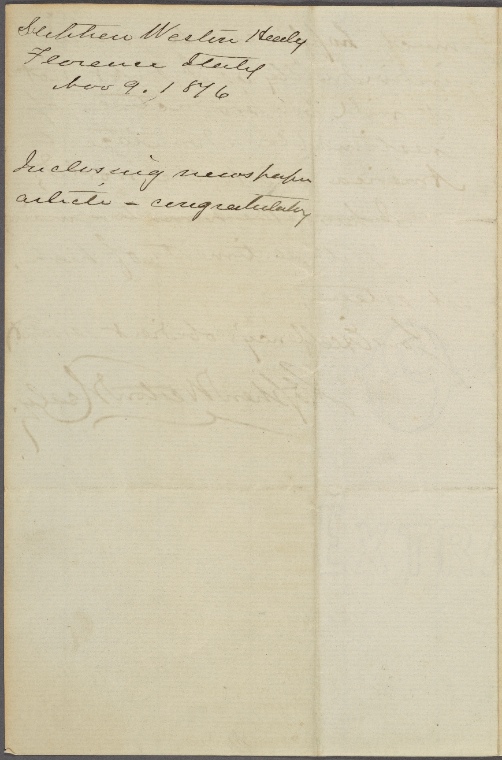 Stephen Weston Healy
Florence Italy
Nov 9. 1876
Inclosing newspaper
article - congratulatory